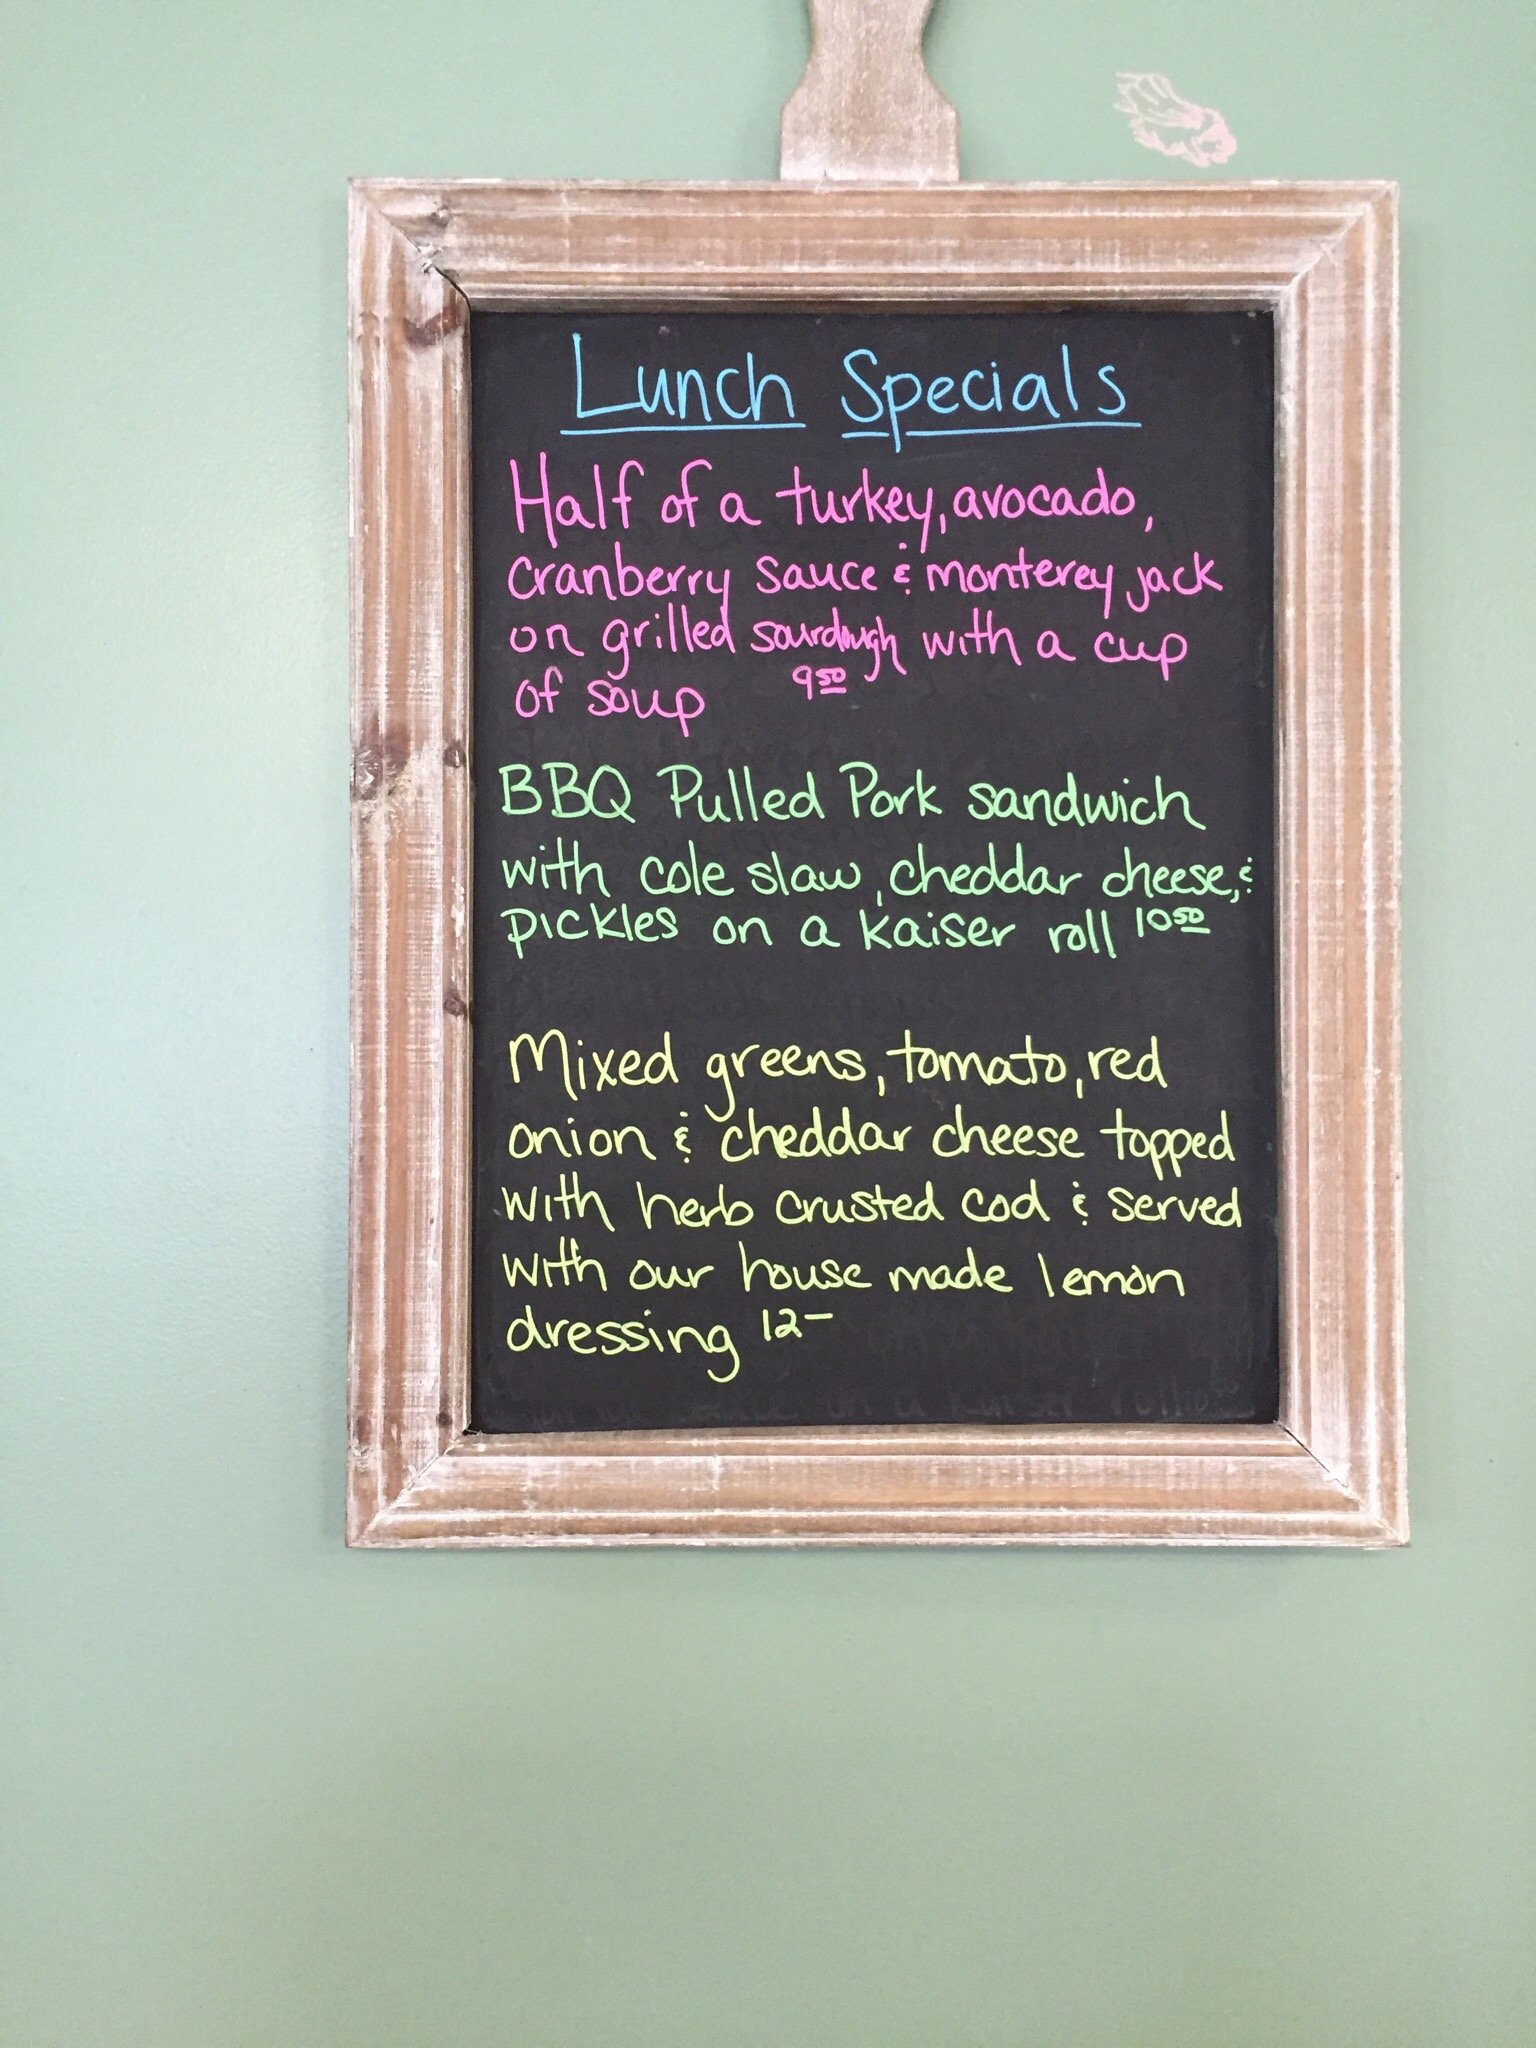 Lunch Specials
Half of a turkey, avocado,
cranberry sauce & monterey jack
on grilled sourdough with a cup
of soup 9.50
BBQ Pulled Pork sandwich
with cole slaw, cheddar cheese, &
pickles on a kaiser roll 10.50
Mixed greens, tomato, red
onion & cheddar cheese topped
with herb crusted cod & served
with our house made lemon
dressing 12-